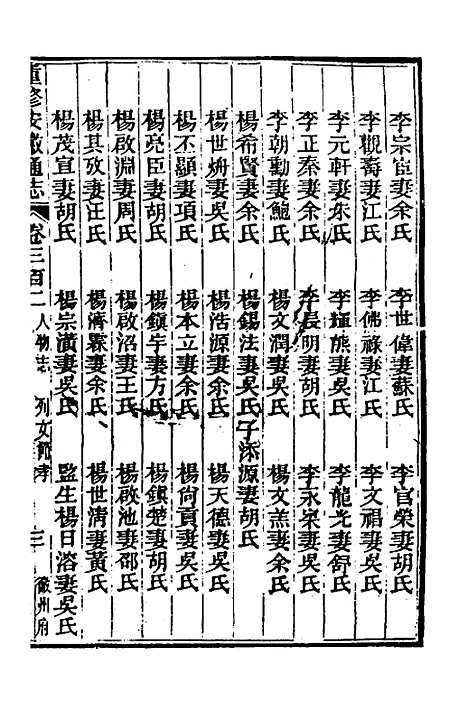 李宗宦妻余氏　李世偉妻蘇氏　李官榮妻胡氏
李觀壽妻江氏　李佛祿妻江氏　李文祖妻吳氏
李元軒妻朱氏　李撝熊妻吳氏　李龍光妻舒氏
李正秦妻余氏　李長明妻胡氏　李永泉妻吳氏
李朝勳妻鮑氏　楊文潤妻吳氏　楊文羔妻余氏
楊希賢妻余氏　楊錫法妻吳氏子添源妻胡氏
楊世炳妻吳氏　楊浩源妻余氏　楊天德妻吳氏
楊丕顯妻項氏　楊本立妻余氏　楊尙貢妻吳氏
楊亮臣妻胡氏　楊鎮宇妻方氏　楊鎮楚妻胡氏
楊啟淵妻周氏　楊啟沼妻王氏　楊啟池妻邵氏
楊其攷妻汪氏　楊濟霖妻余氏　楊世淸妻黃氏
楊茂宣妻胡氏　楊宗濱妻吳氏　監生楊日溶妻吳氏
重修安徽通志　卷三百二　人物志　列女節孝　三　徽州府